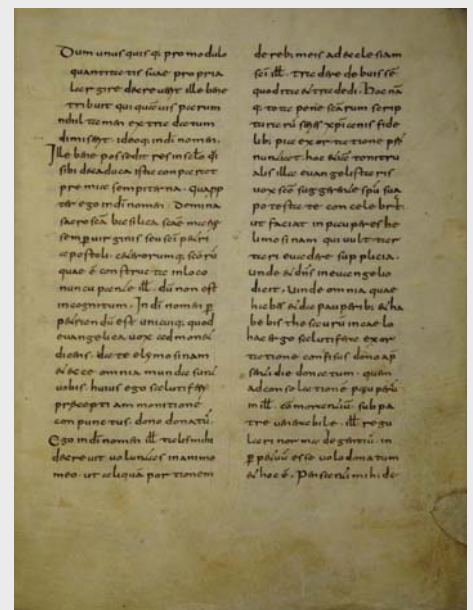 Dum unusquisq; pro modulo
quantitatis suae propria
largire decreverit ille bene
tribuit qui quamvis parum
nihil tamen extra dictum
dimisit. ideoq; in di nomen.
Ille bene possedit res in sclo q
sibi de caduca ista conparet
premia sempiterna. Quapp
ter ego in di nomen. Domina
sacrosca basilica scae mariae
semp virginis seu sci petri
apostoli. caeterorumq; scoru
quae e constructa in loco
nuncupante ill. du non est
incognitum. In di nomen p
petiendu est unicuiq; quod
evangelica vox admonet
dicens. date elymosinam
et ecce omnia munda sunt
vobis. huius ego salutifery
precepti ammonitione
conpunctus. dono donatu.
Ego in di nomen ill. talis mihi
decrevit voluntas in animo
meo. ut aliqua portionem
de reb; meis ad aecclesiam
sci ill. tradere debuissē
quod ita et tradedi. Hoc nā
q; tota pene scarum scrip
turaru series xpianis fide
lib; pie exortatione
nunciat. hoc etiā tonitru
alis illa evangelistaris
vox sco suggerente spu sua
potestate concelebrat.
ut faciat in pauperes he
limosinam qui vult tar
tari evadere supplicia.
unde et dns in evangelio
dicit. Vende omnia quae
habes et da pauperib; et ha
bebis thesaurum in caelo
hac ergo salutifera exor
tatione confisus dono
donatum. quan
ad consolatione pauperu
in ill. commorantiu. sub pa
tre venerabile ill. regu
lari norma degentiu. in
p petuu esse volo donatum
et hoc ē. Pensavi mihi de